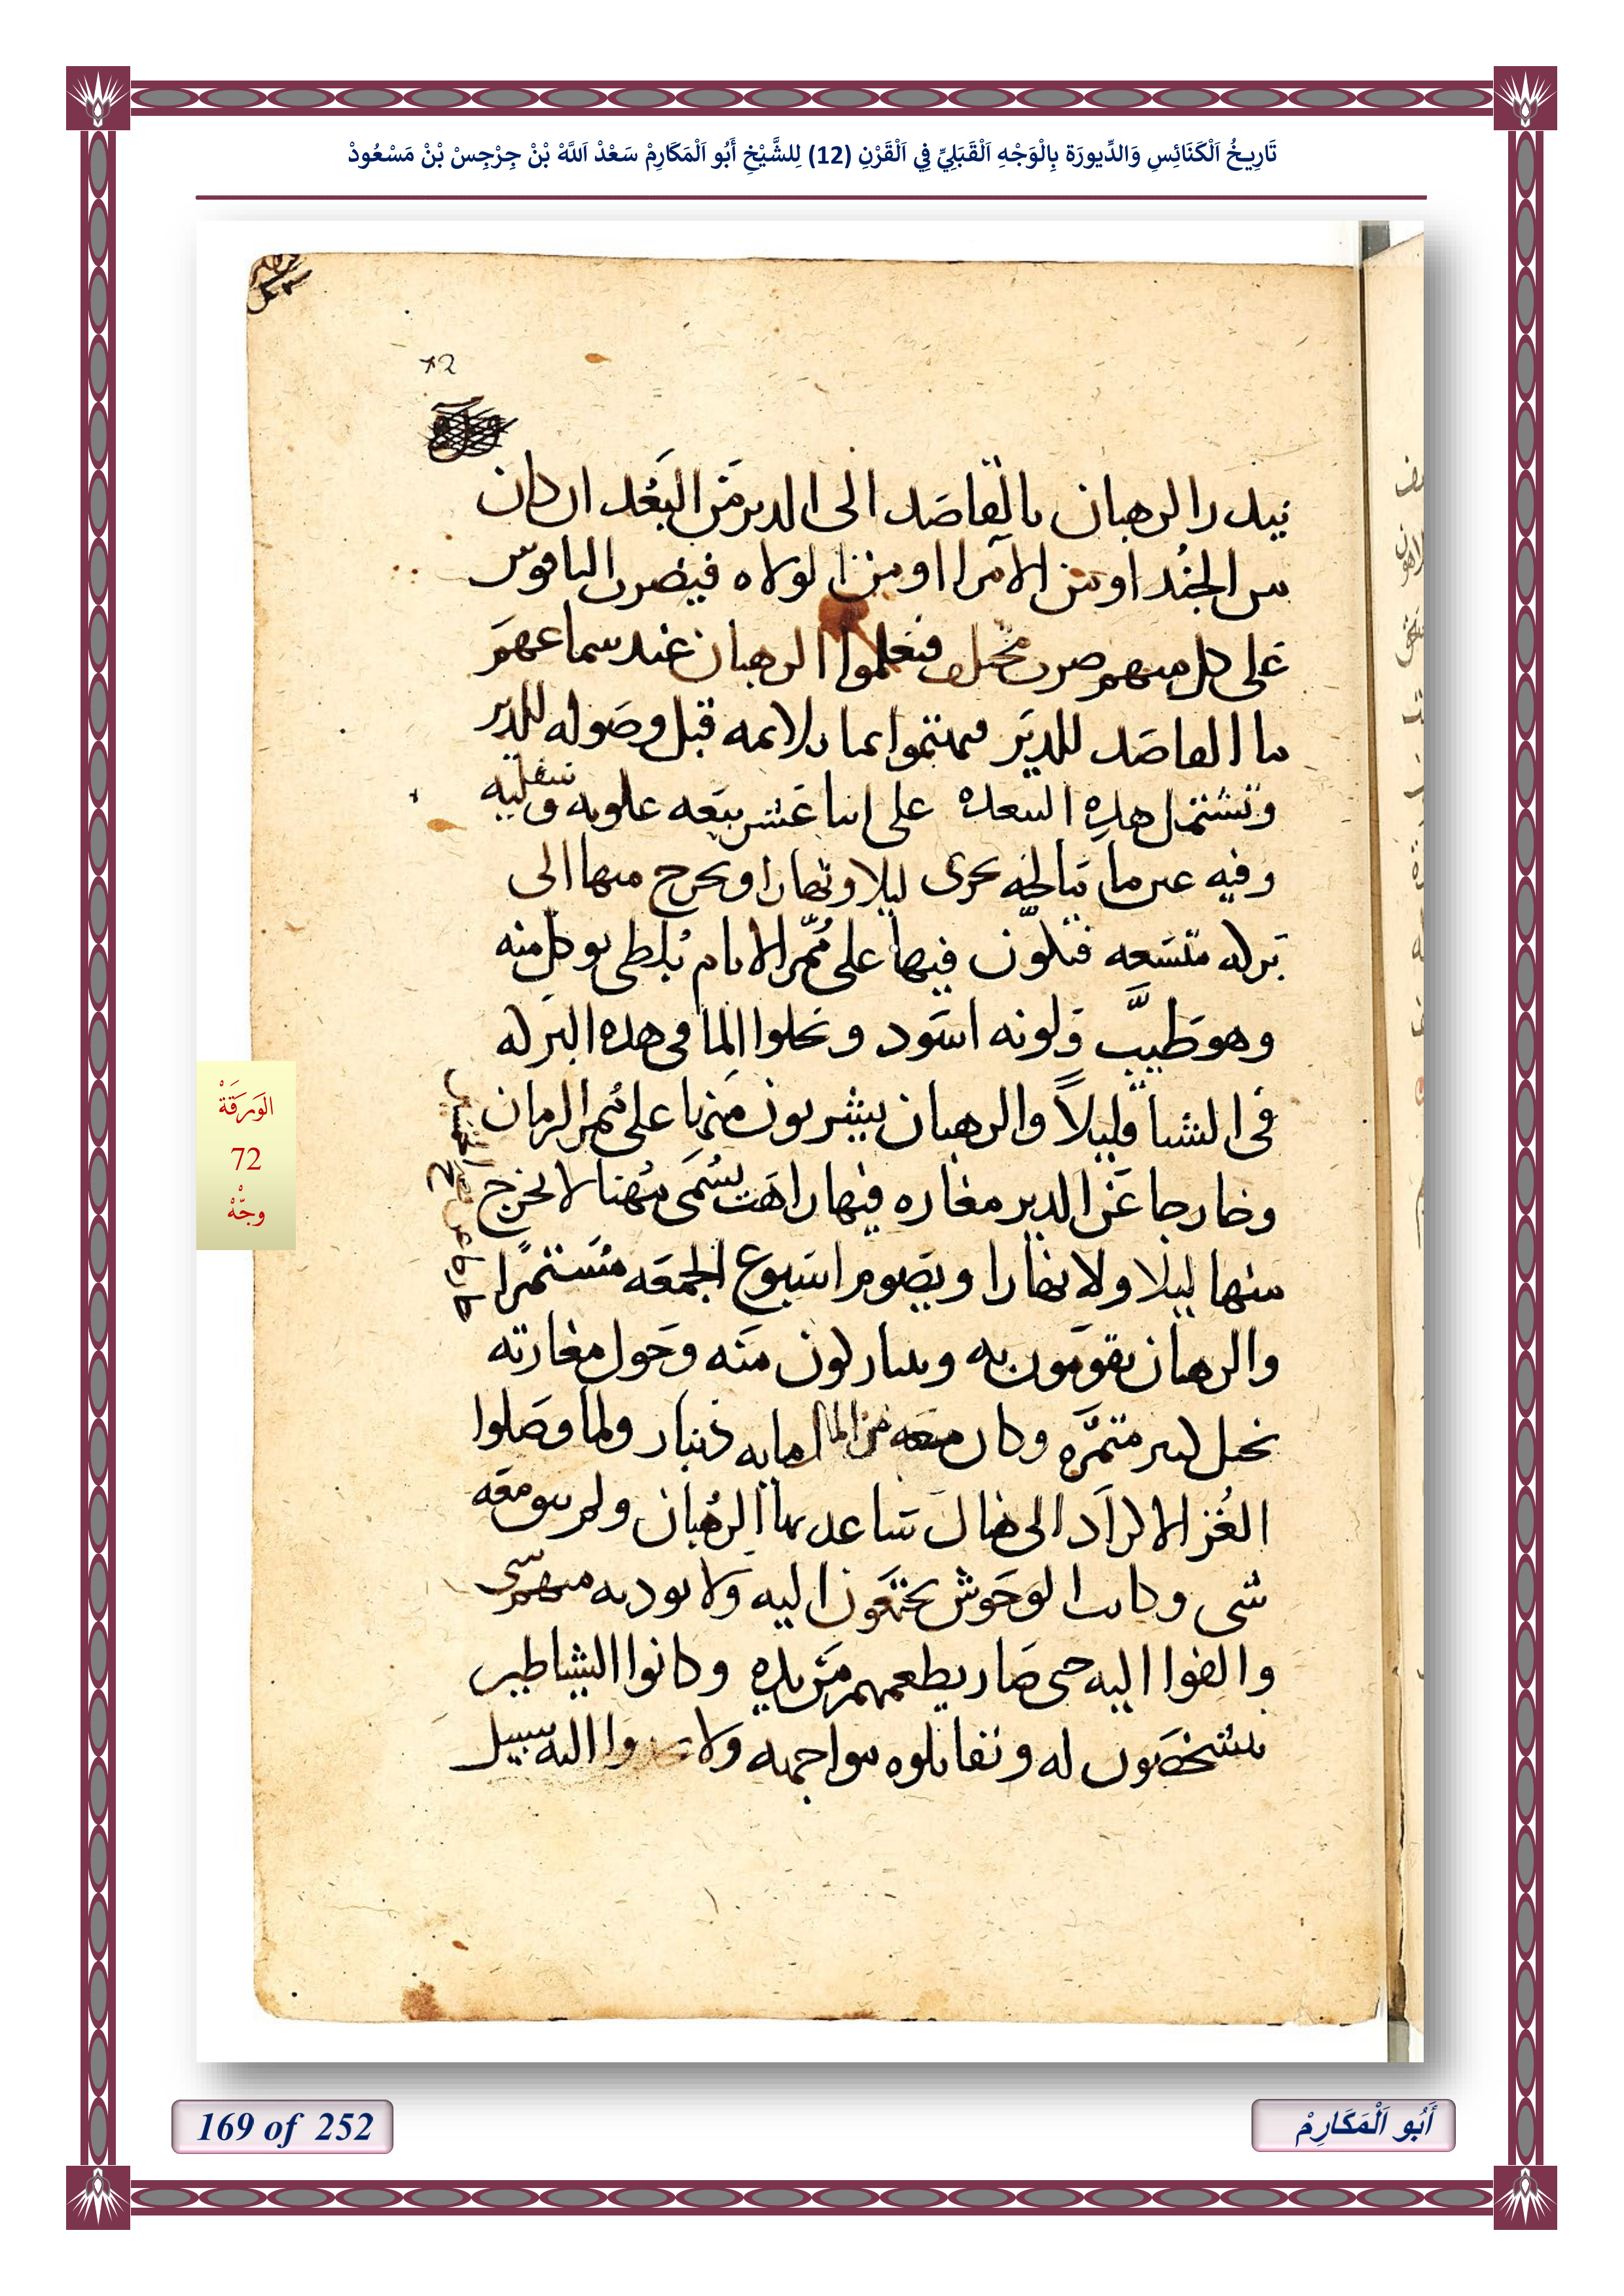 تَارِيخُ اَلْكَنَائِسِ وَالدِّيورَة بِالْوَجْهِ اَلْقَبَلِيِّ فِي اَلْقَرْنِ (12) لِلشَّيْخِ أَبُو اَلْمَكَارِمْ سَعْدْ اَللَّهْ بْنْ جِرْجِسْ بْنْ مَسْعُودْ
72
ينيدر الرهبان بالقاصد الى الدير من البعد ان كان
من الجند او من الامرا او من الولاه فيضرب الناقوس
على كل منهم ضرب مختلف فيعلموا الرهبان عند سماعهم
ما القاصد للدير فيهتموا بما يلايمه قبل وصوله للدير
وتشتمل هذه البيعه على اثنا عشر بيعه علويه وسفليه
وفيه عين ما مالحه تجرى ليلا ونهارا ويخرج منها الى
بركه متسعه فتكون فيها على ممر الايام بلطى يوكل منه
وهو طيب ولونه اسود وتحلوا الما فى هذه البركه
فى الشتا قليلاً والرهبان يشربون منها على ممر الزمان
وخارجا عن الدير مغاره فيها راهب يسمى مهنا لا يخرج
منها ليلا ولا نهارا ويصوم اسبوع الجمعه مستمرا
والرهبان يقومون به ويتباركون منه وحول مغارته
نخل كثير مثمره وكان معه من المال مايه دينار ولما وصلوا
الغز الاكراد الى هناك ساعد بها الرهبان ولم يبق معه
شى وكانت الوحوش يجتمعون اليه ولا يوديه منهم شى
والفوا اليه حتى صار يطعمهم من يده وكانوا الشياطين
يتشخصون له وتقاتلوه مواجهه ولا يجدوا اليه سبيل
الوَرَقَةْ
72
وجّهْ
169 of 252
أَبُو اَلْمَكَارِمْ